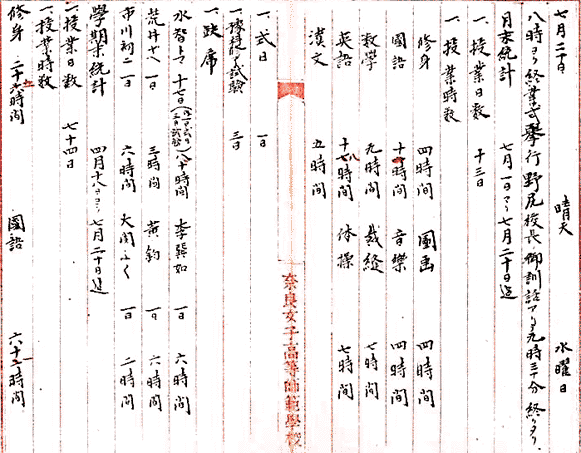 七月二十日 晴天 水曜日
八時ヨリ終業式擧行野尻校長御訓話アリ九時三十分終ハリタリ、
月末統計 七月一日ヨリ七月二十日迄
一、授業日数 十三日
一、授業時数
修身 四時間 圖画 四時間
國語 十時間 音樂 四時間
数學 九時間 裁縫 七時間
英語 十八時間 体操 七時間
漢文 五時間
奈良女子高等師範學校
一、式日 一日
一、試験 三日
一、欠席
水智トマ 十七日 八十時間 李巽如 一日 六時間
荒井ナヘ 一日 三時間 黄鈞 一日 六時間
市川初二 一日 六時間 大関ふく 一日 二時間
學期末統計 四月十八日ヨリ七月二十日迄
一、授業日数 七十四日
一、授業時数
修身 二十五時間 國語 六十二時間